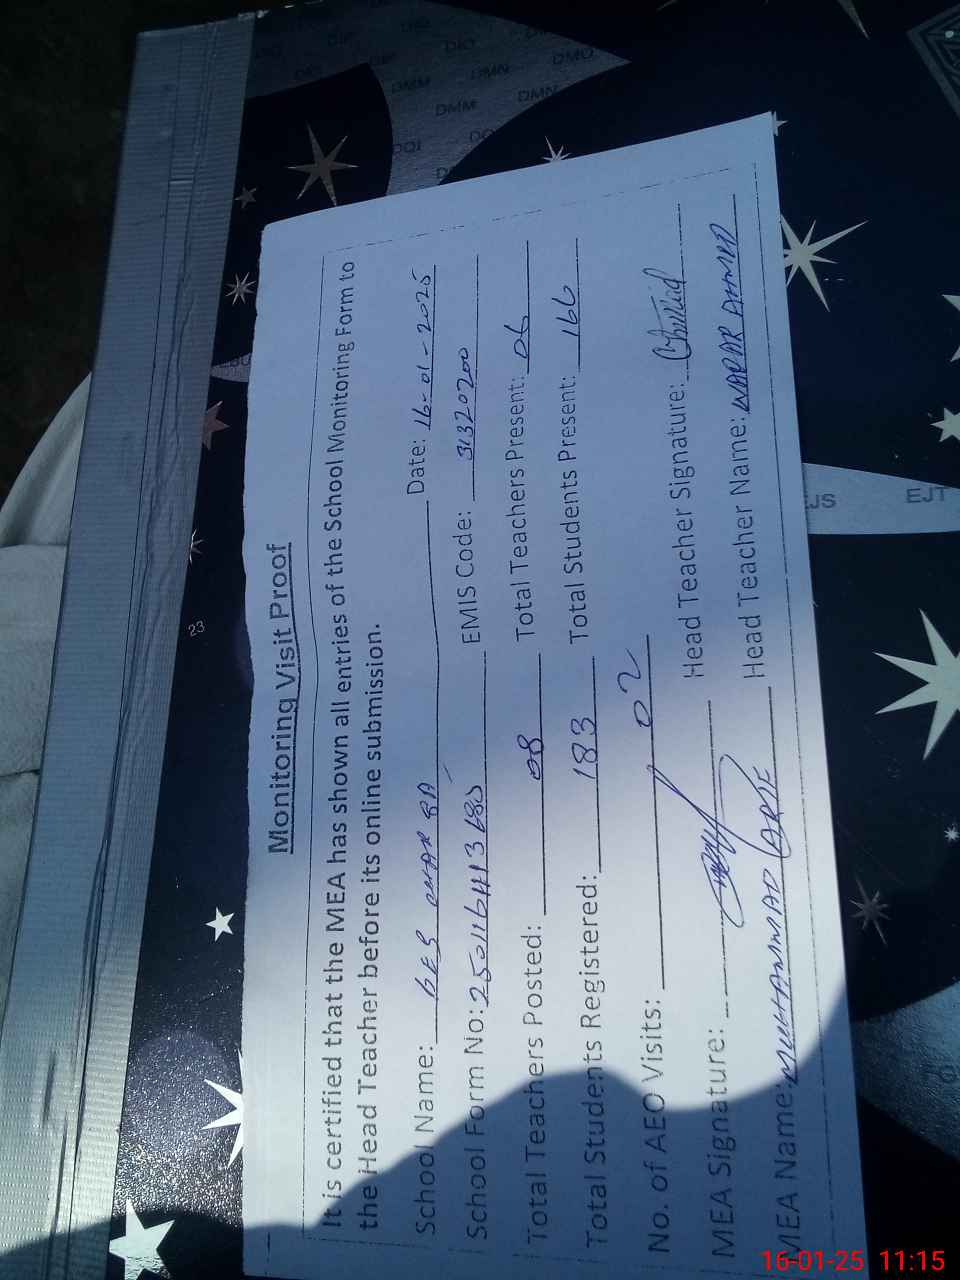 Monitoring Visit Proof
It is certified that the MEA has shown all entries of the School Monitoring Form to
the Head Teacher before its online submission.
School Name: GES Date: 16-01-2025
School Form No: EMIS Code: 31320200
Total Teachers Posted: 08 Total Teachers Present: 06
Total Students Registered: 183 Total Students Present: 166
No. of AEO Visits: 02
MEA Signature: Head Teacher Signature:
MEA Name: MUHAMMAD ARIF Head Teacher Name: WAQAR AHMED
DIO
DMM
DMN
DMO
DMM
DMN
DQI
EJS
EJT
23
16-01-25 11:15